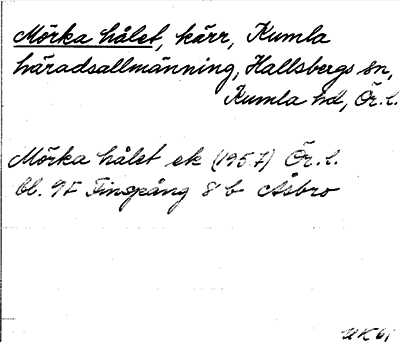 Mörka hålet, kärr, Kumla
häradsallmänning, Hallsbergs sn,
Kumla hd, Ör. l.
Mörka hålet ek (1957) Ör. l.
bl. 9F Finspång 8 b Åsbro
UK 61